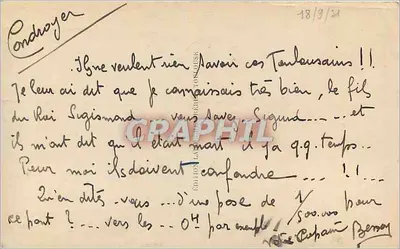 Condroyer
18/9/31
Ils ne veulent rien savoir ces Toulousains !!
Je leur ai dit que je connaissais très bien, le fils
du Roi Sigismond vous savez Sigurd .... et
ils m'ont dit qu'il était mort il y a qq. temps..
CPARAMA.COM
Pour moi ils doivent confondre ... !.!...
Qu'en dites-vous... d'une pose de 1/500.000 pour
ce port ? ... vers les .. 04 par exemple !
Votre Copain Besson